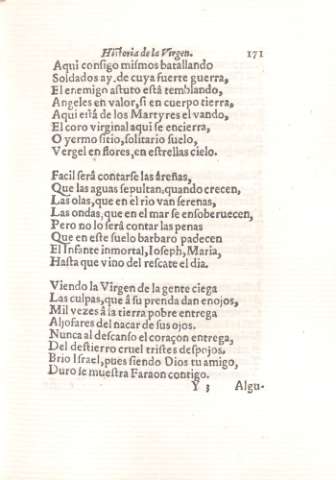 Historia de la Virgen. 171
Aqui consigo mismos batallando
Soldados ay, de cuya fuerte guerra,
El enemigo astuto està temblando,
Angeles en valor, si en cuerpo tierra,
Aqui està de los Martyres el vando,
El coro virginal aqui se encierra,
O yermo sitio, solitario suelo,
Vergel en flores, en estrellas cielo.
Facil serà contarse las areñas,
Que las aguas sepultan, quando crecen,
Las olas, que en el rio van serenas,
Las ondas, que en el mar se ensoberuecen,
Pero no lo serà contar las penas
Que en este suelo barbaro padecen
El Infante inmortal, Ioseph, Maria,
Hasta que vino del rescate el dia.
Viendo la Virgen de la gente ciega
Las culpas, que â su prenda dan enojos,
Mil vezes â la tierra pobre entrega
Aljofares del nacar de sus ojos.
Nunca al descanso el coraçon entrega,
Del destierro cruel tristes despojos.
Brio Israel, pues siendo Dios tu amigo,
Duro se muestra Faraon contigo.
Y 3 Algu-